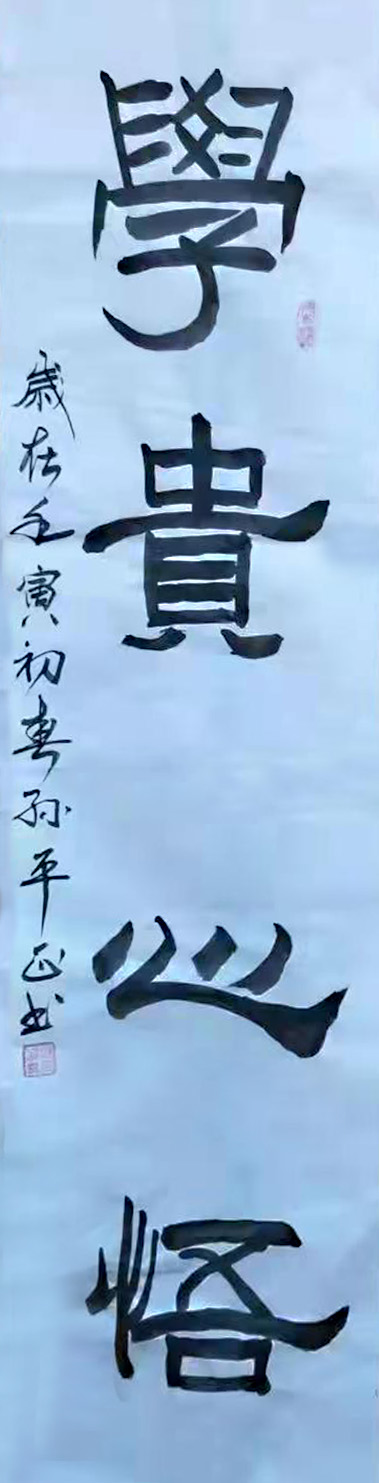 學貴心悟
歲在壬寅初春孫平正书